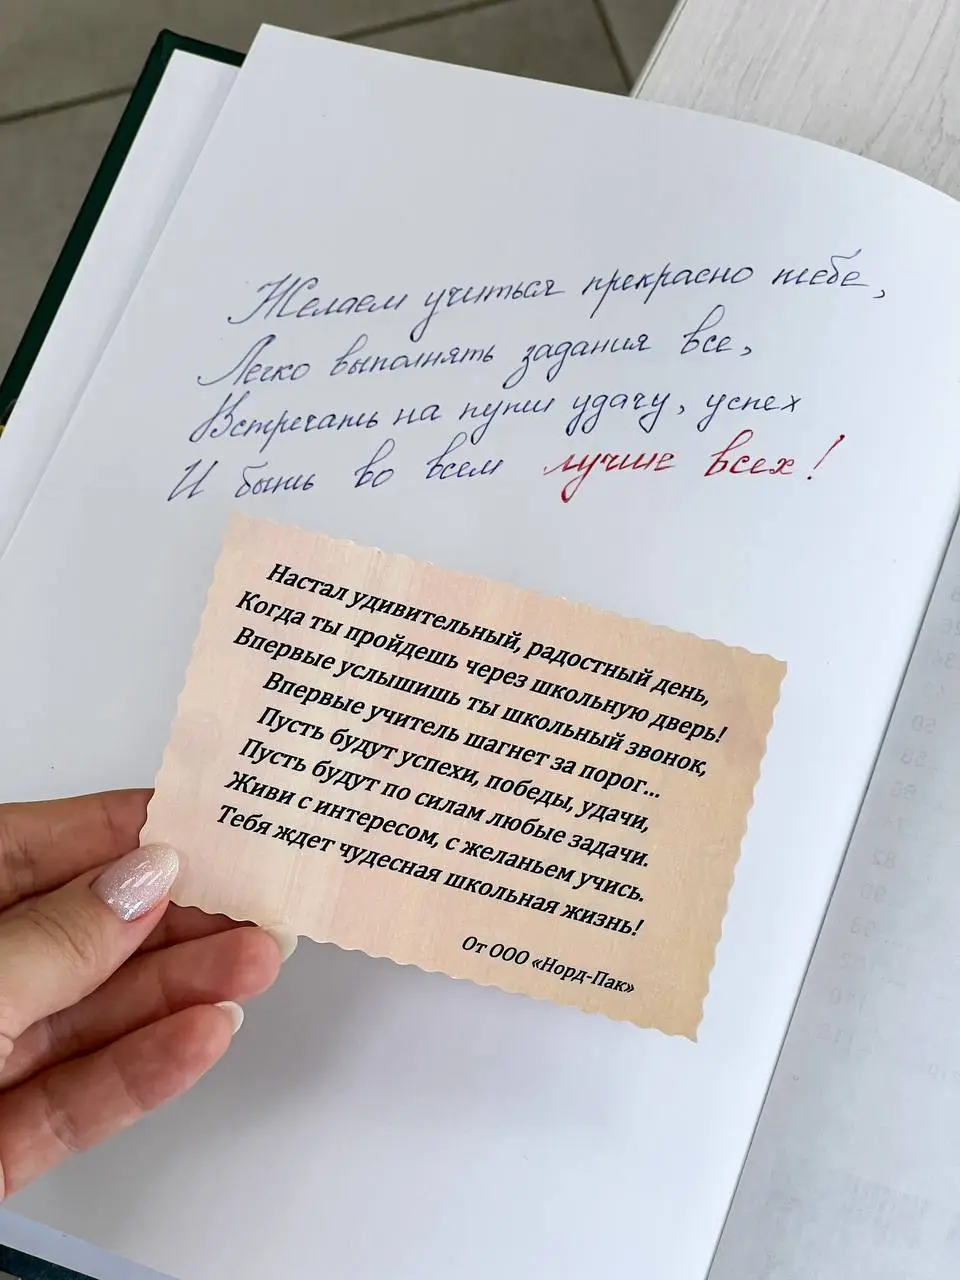 Желаем учиться прекрасно тебе,
Легко выполнять задания все,
Встречать на пути удачу, успех
И быть во всем лучше всех!
Настал удивительный, радостный день,
Когда ты пройдешь через школьную дверь!
Впервые услышишь ты школьный звонок,
Впервые учитель шагнет за порог...
Пусть будут успехи, победы, удачи,
Пусть будут по силам любые задачи.
Живи с интересом, с желаньем учись.
Тебя ждет чудесная школьная жизнь!
От ООО «Норд-Пак»